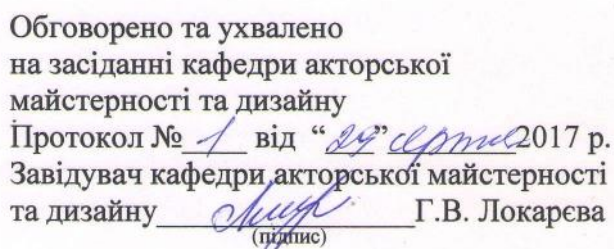 Обговорено та ухвалено
на засіданні кафедри акторської
майстерності та дизайну
Протокол № 1 від “29” серпня 2017 р.
Завідувач кафедри акторської майстерності
та дизайну Г.В. Локарєва
(підпис)